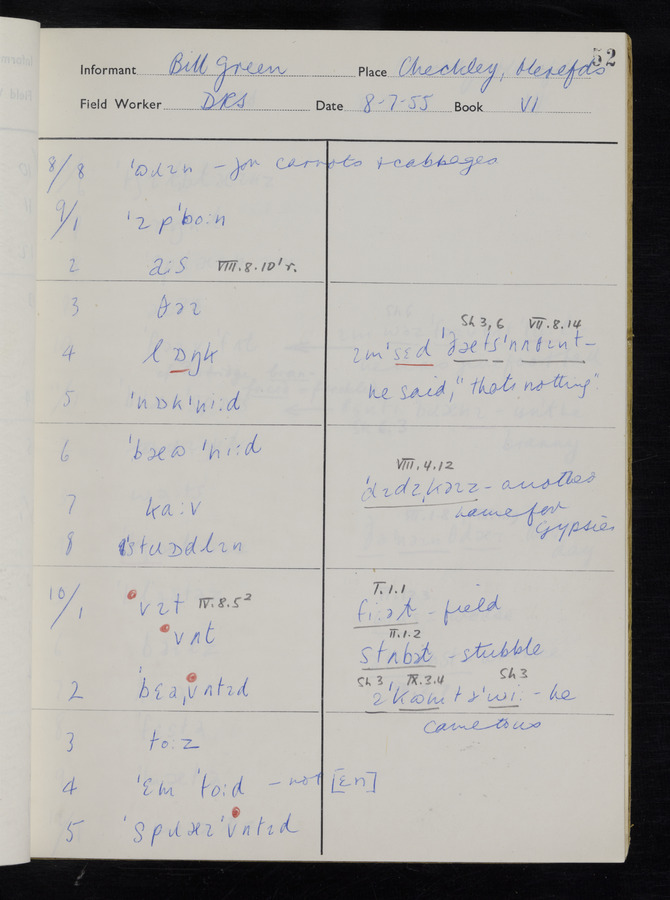 52
Informant Bill Green Place Checkley, Herefds
Field Worker DRS Date 8-7-55 Book VI
8/8 – for carrots & cabbages
9/1 ˈɪ pˈboːn
2 aːs VIII.8.10ˈr.
3
4 lɒŋk
5 ˈnɒkˈniːd
6 ˈbæʊ ˈniːd
7 kaːv
8
10/1 vɪt IV.8.5²
vʌt
2 ˈbɛəˌvʌtɪd
3 toːz
4 ˈɛm ˈtoːd – not [ɛn]
5
Sh 3,6 VII.8.14
he said, "thats nothing"
VIII.4.12
– another
name for
gypsies
I.1.1
– field
II.1.2
stʌbət – stubble
Sh 3 IX.3.4 Sh 3
– he
came to us